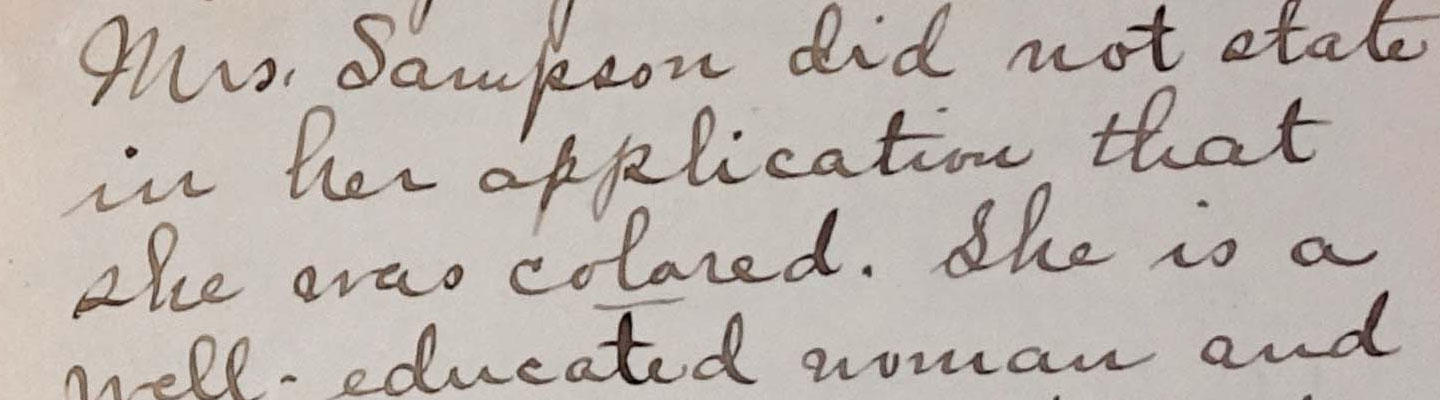 Mrs. Sampson did not state
in her application that
she was colored. She is a
well-educated woman and